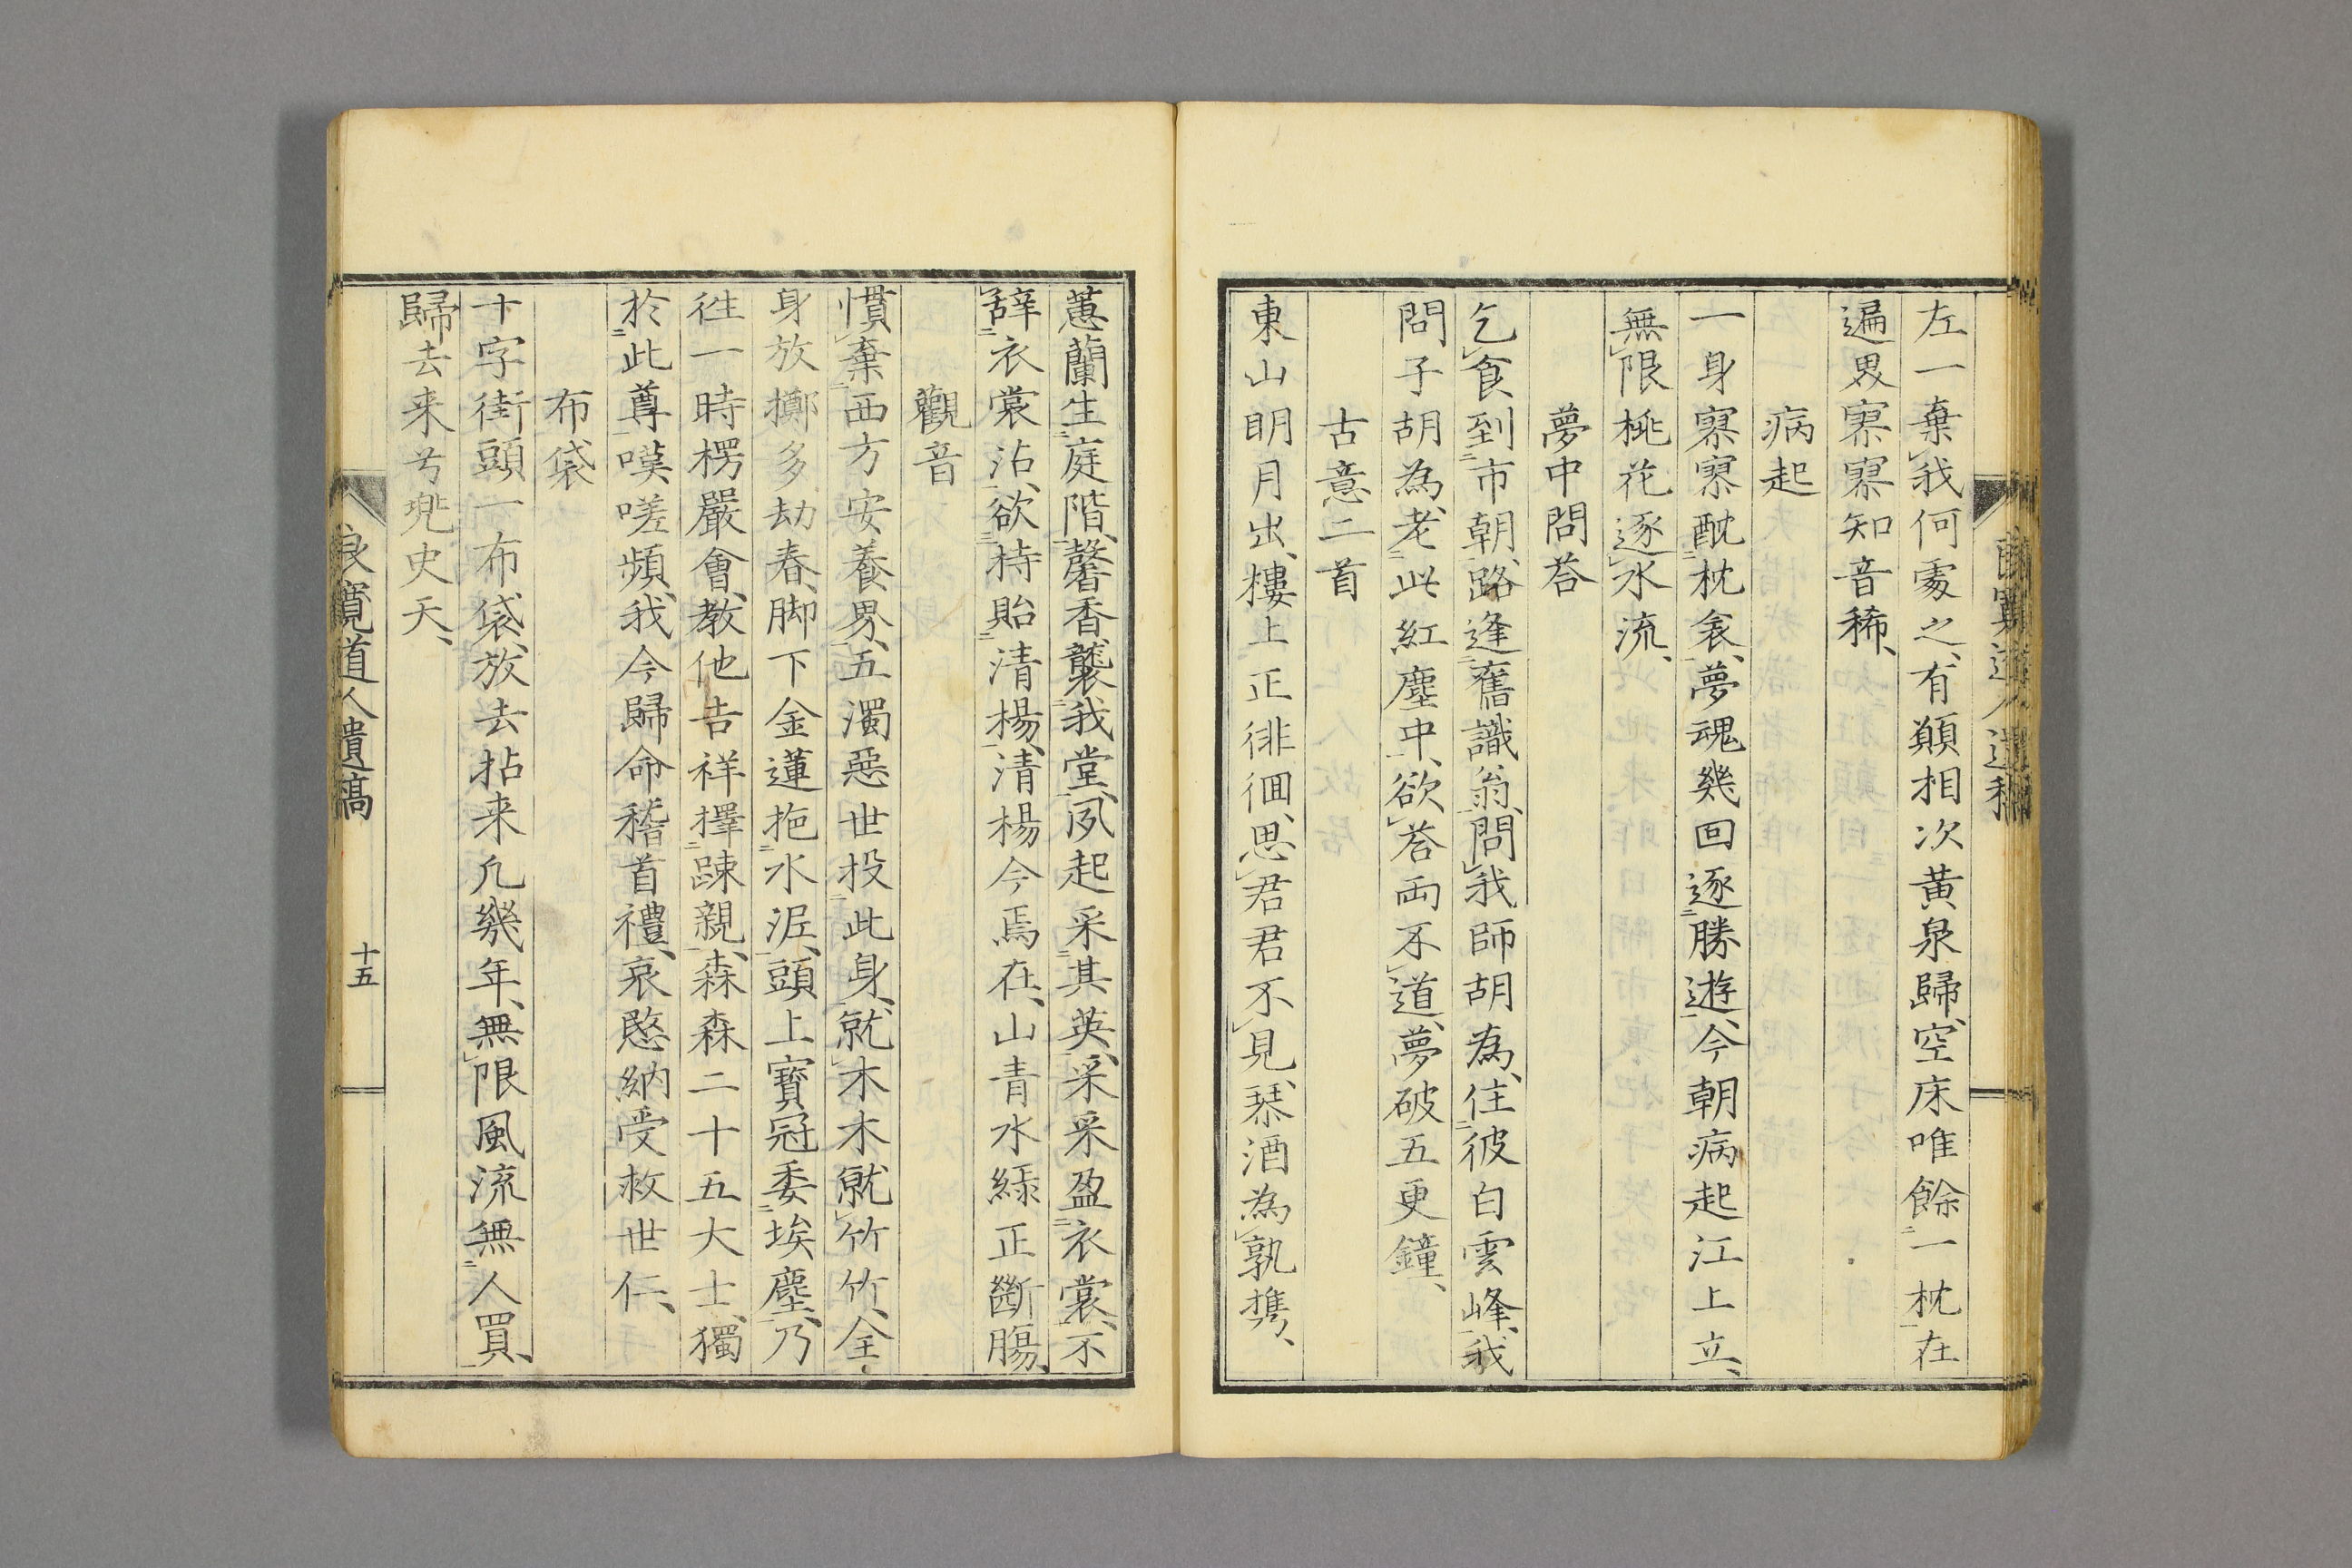 左一棄、我何處之、有顛相次黄泉歸、空床唯餘一枕在
遍界寥寥知音稀、
病起
一身寥寥酖枕衾、夢魂幾回逐勝遊、今朝病起江上立、
無限桃花逐水流、
夢中問荅
乞食到市朝、路逢舊識翁、問我師胡為、住彼白雲峰、我
問子胡為、老此紅塵中、欲荅両不道、夢破五更鐘、
古意二首
東山明月出、樓上正徘徊、思君君不見、琹酒為孰携、
蕙蘭生庭階、馨香襲我堂、夙起采其英、采采盈衣裳、不
辞衣裳沾、欲持貽清楊、清楊今焉在、山青水緑正斷腸、
觀音
慣棄西方安養界、五濁惡世投此身、就木木就竹竹、全
身放擲多劫春、脚下金蓮拖水泥、頭上寳冠委埃塵、乃
徃一時楞嚴會、教他吉祥擇踈親、森森二十五大士、獨
於此尊嘆嗟頻、我今歸命稽首禮、哀愍納受救世仁、
布袋
十字街頭一布袋、放去拈来凢幾年、無限風流無人買、
歸去来兮兠史天、
良寛道人遺稿
十五